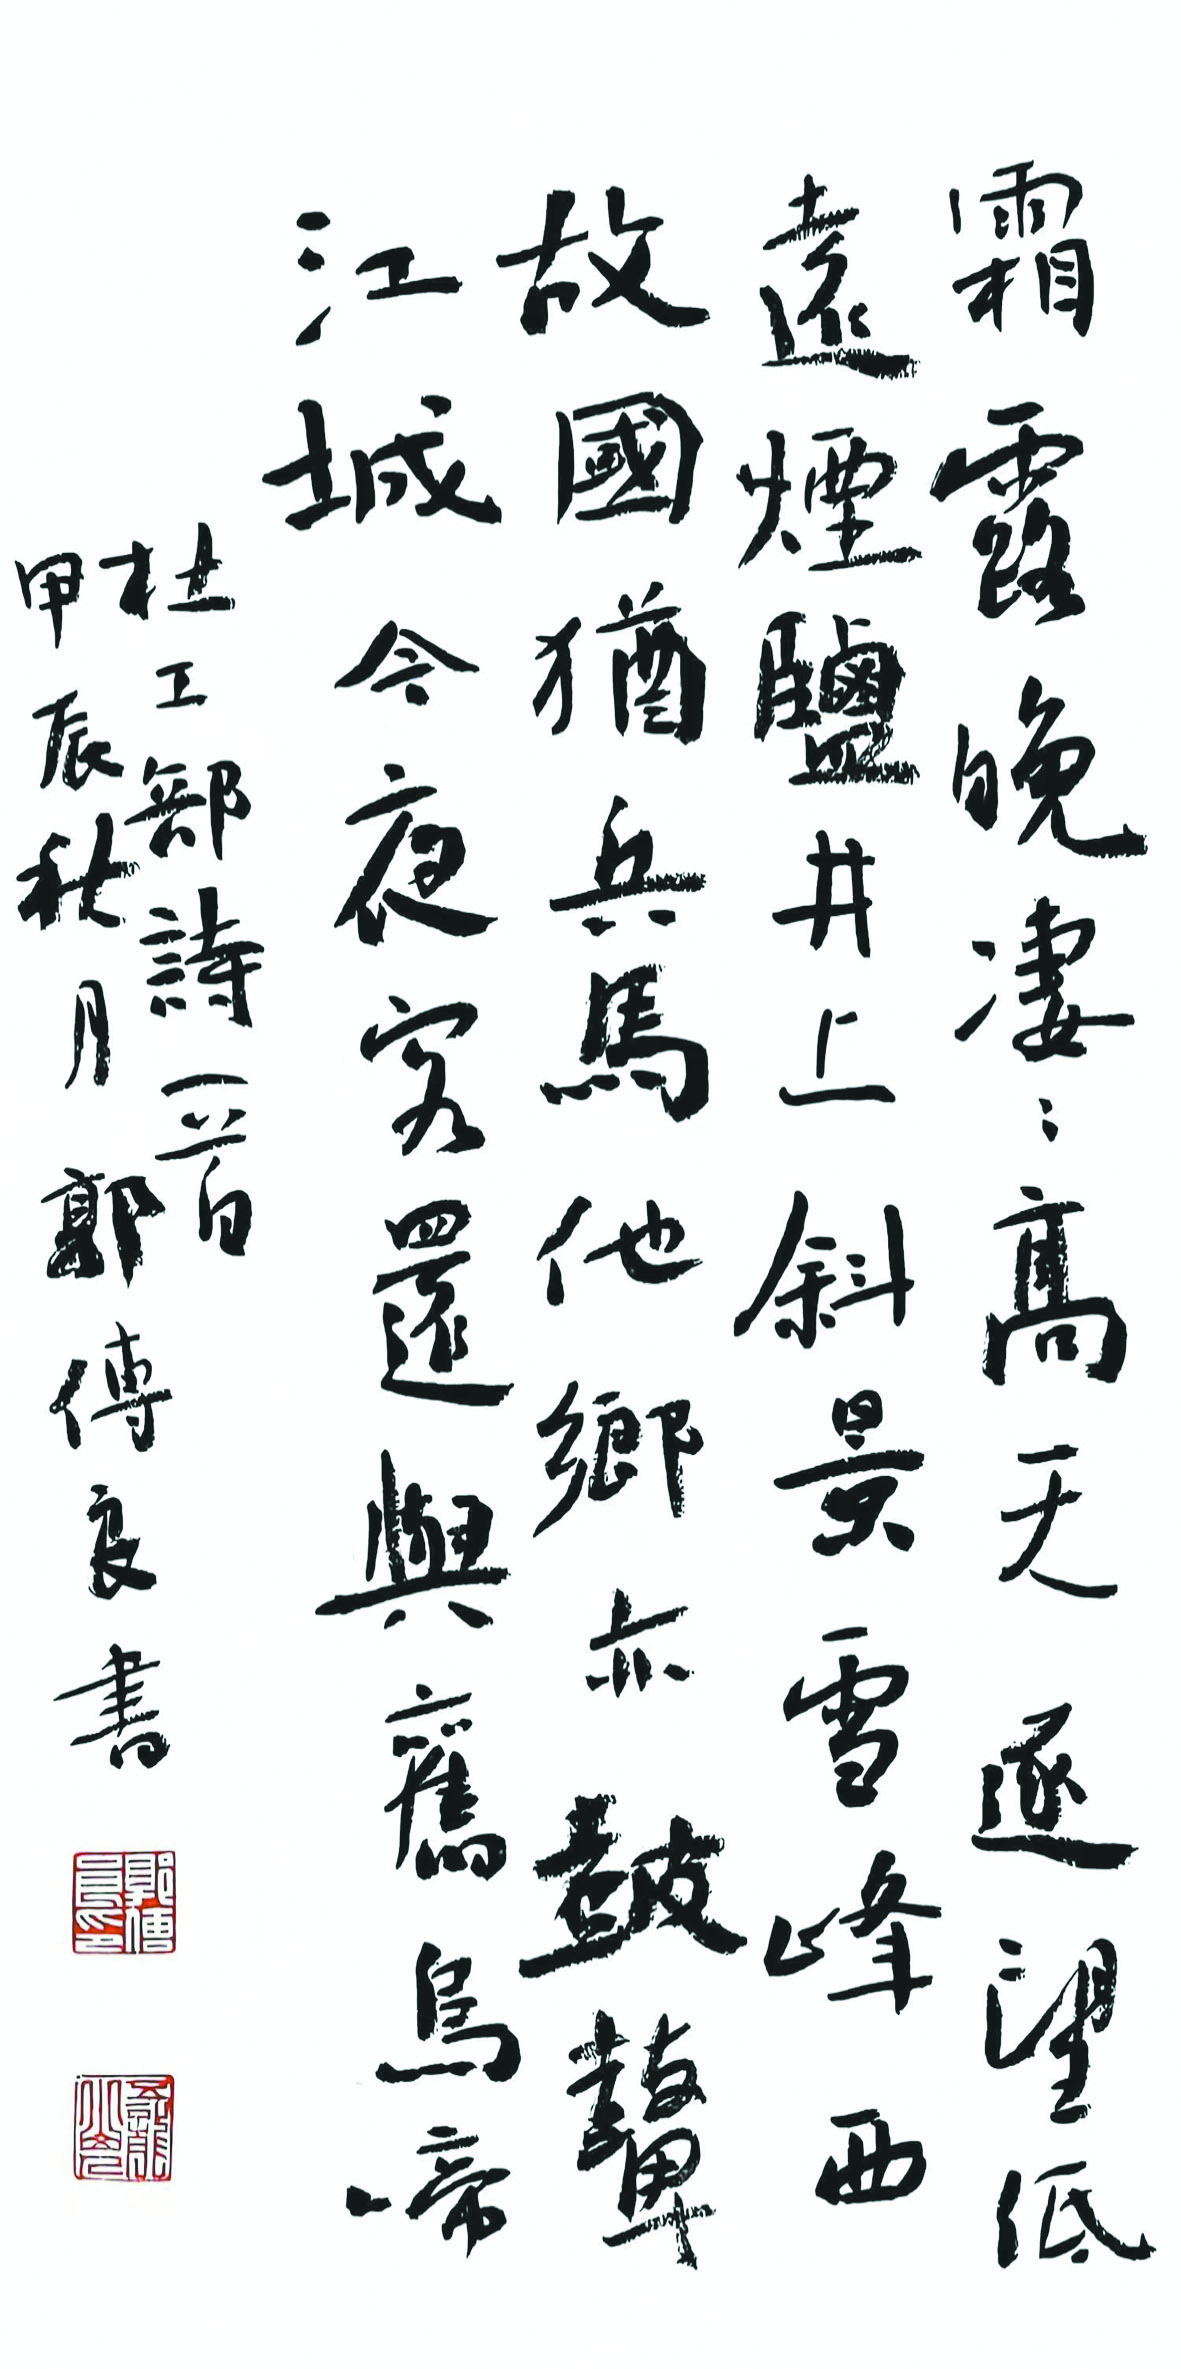 霜露晚凄〻高天逐望低
遠煙鹽井上斜景雪峰西
故國猶兵馬他鄉亦鼓鼙
江城今夜客還與舊烏啼
杜工部詩一首
甲辰秋月郭傳良書
郭傳良印